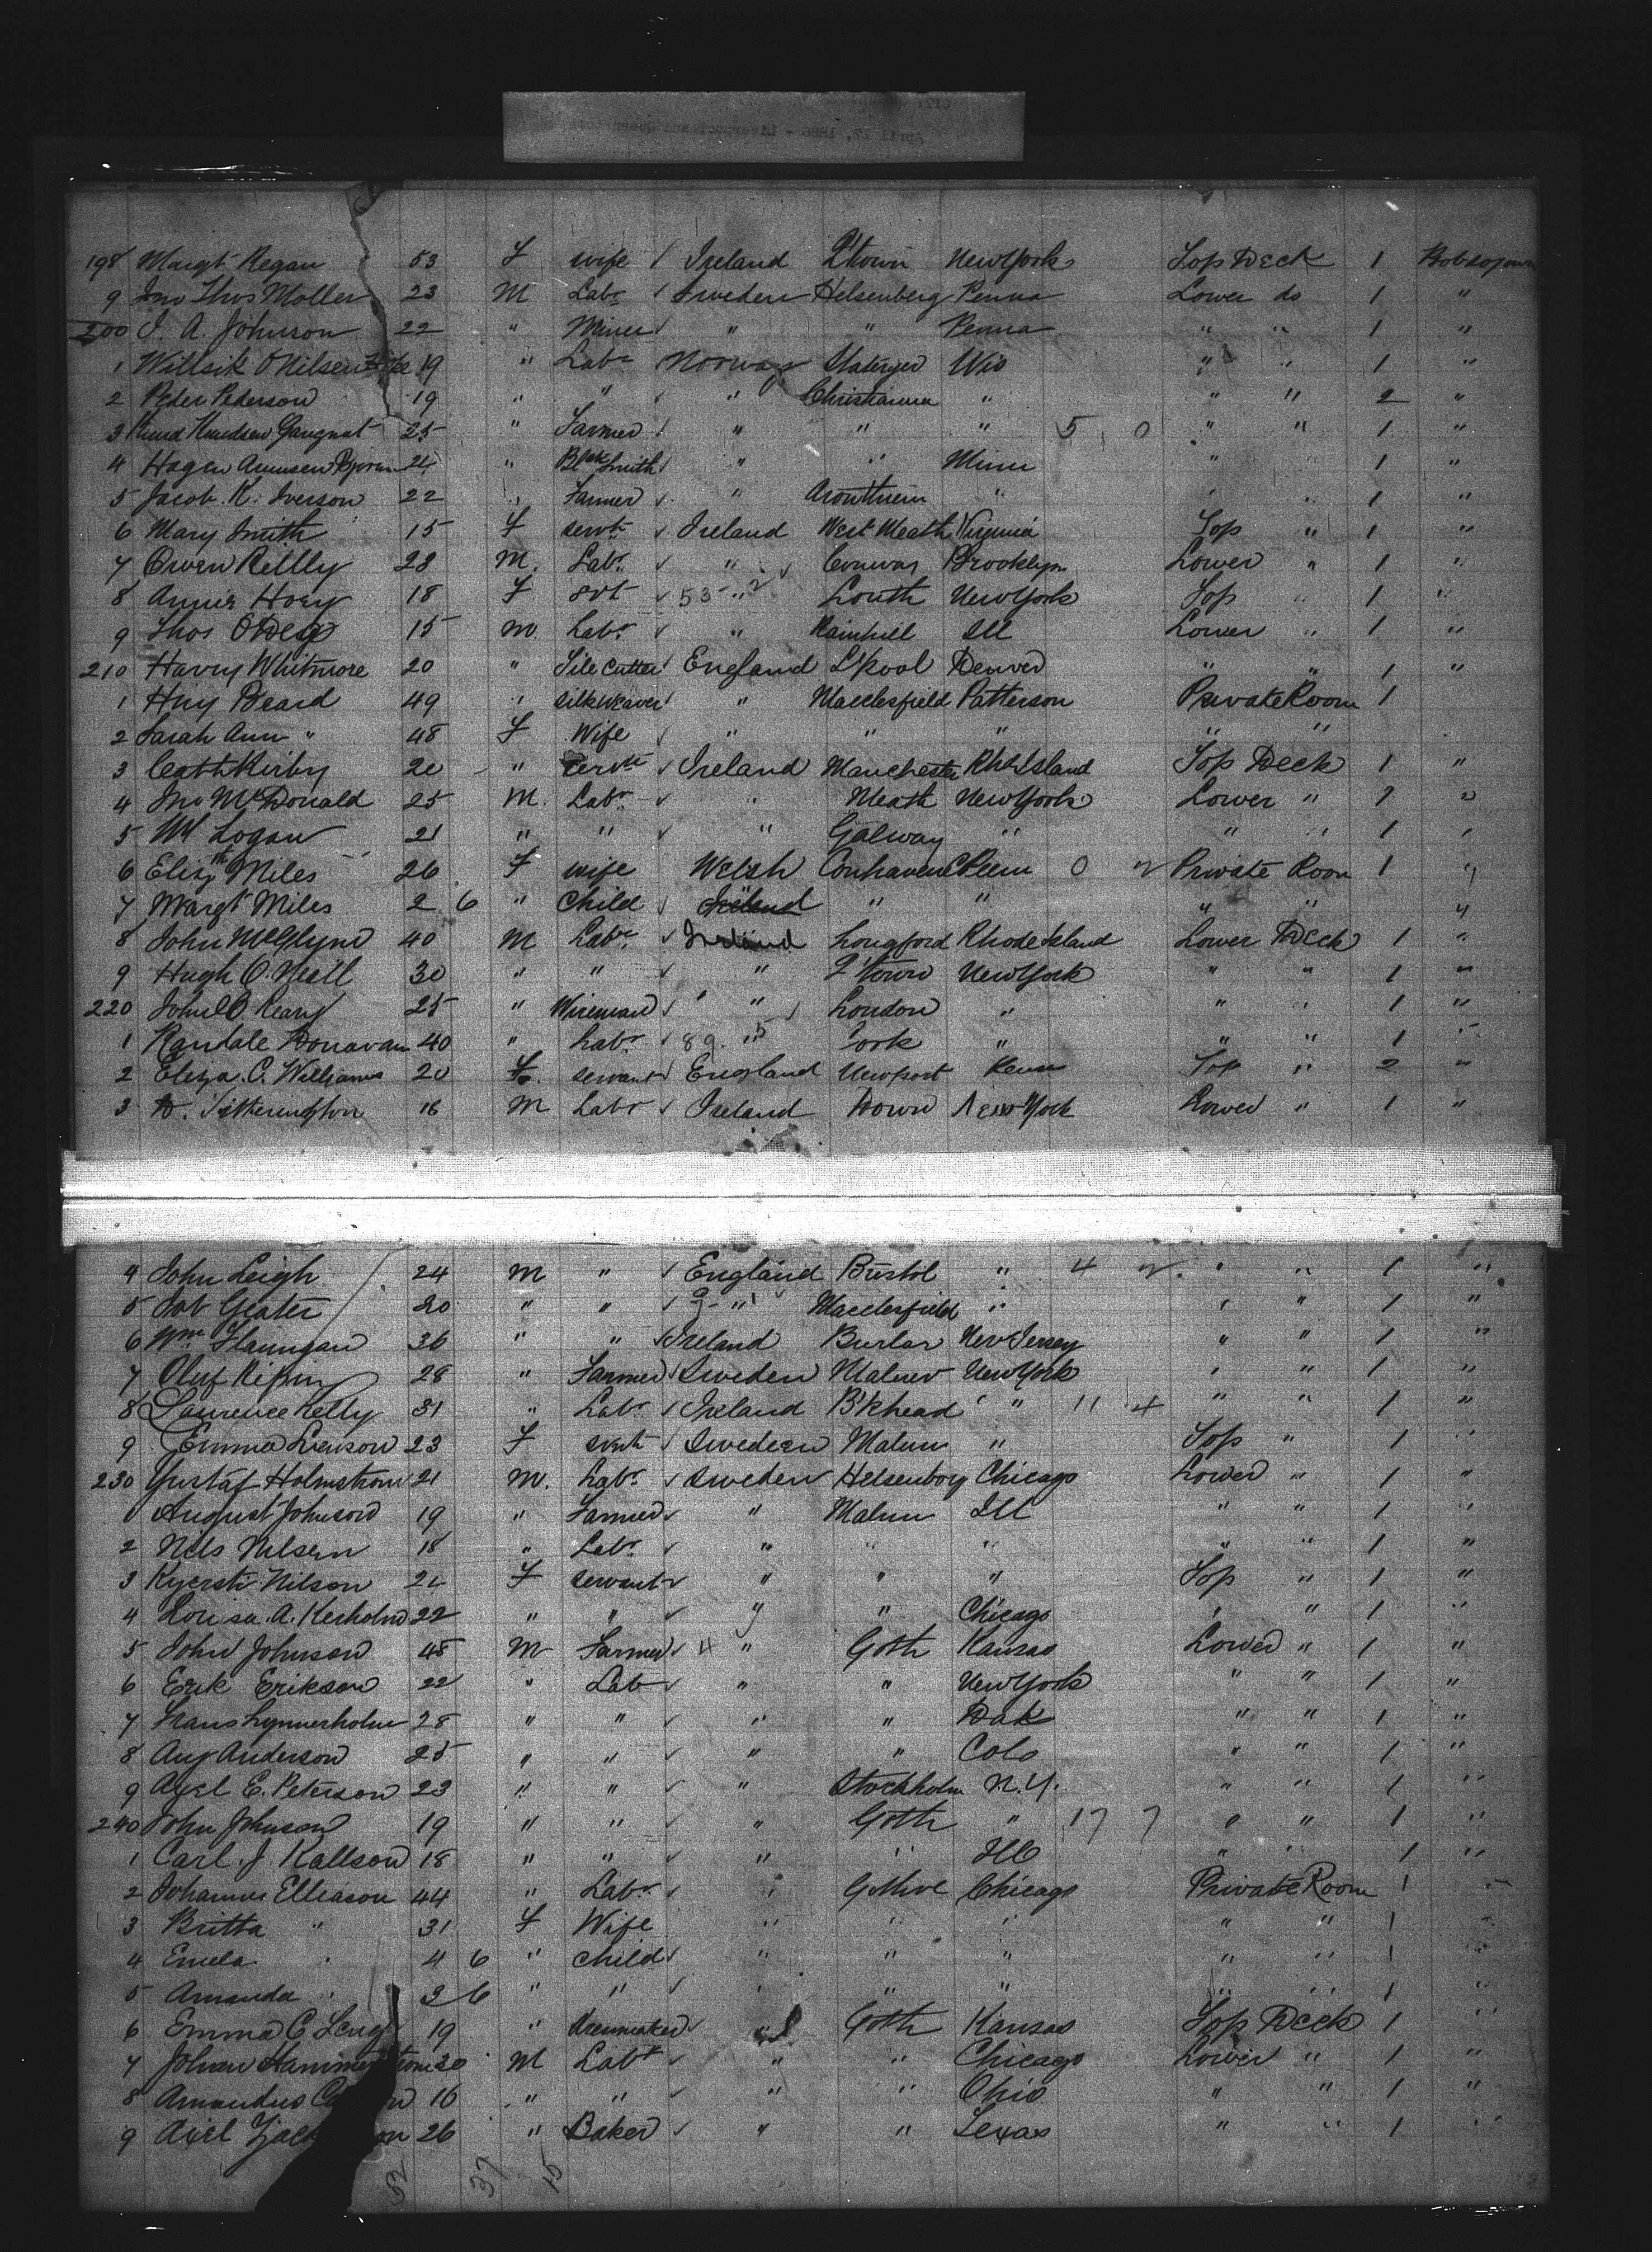 198 Margt Regan 53 F wife Ireland Q'town New York Top Deck 1
9 Jno Thos Moller 23 M Labr Sweden Helsenberg Penna Lower do 1 "
200 J. A. Johnson 22 " Miner " " Penna " " 1 "
1 O Nilsen 19 " Labr Norway Wis " " 1 "
2 Peder Pederson 19 " " " Christianna " " " 2 "
3 Knud Knudsen 25 " Farmer " " " 5 0 " " 1 "
4 Hagen " Blk Smith " " Minn " " 1 "
5 Jacob K. Iverson 22 " Farmer " " " " 1 "
6 Mary Smith 15 F servt Ireland West Meath Virginia Top " 1 "
7 Owen Reilly 28 M. Labr " Brooklyn Lower " 1 "
8 Annie Hoey 18 F svt 53 " 2 Louth New York Top " 1 "
9 Thos 15 M. Labr " Rainhill Ill Lower " 1 "
210 Harry Whitmore 20 " File Cutter England L'pool Denver " " 1 "
1 Hny Beard 49 " silk weaver " Macclesfield Patterson Private Room 1
2 Sarah Ann " 48 F Wife " " " " "
3 Cath Kirby 20 " servt Ireland Manchester Rh Island Top Deck 1 "
4 Jno McDonald 25 M. Labr " Meath New York Lower " 1 "
5 Logan 21 " " " Galway " " " 1 "
6 Elizth Miles 26 F wife Welsh 0 Private Room 1 "
7 Margt Miles 2 6 " Child Ireland " " " " "
8 John McGlynn 40 M Labr Ireland Longford Rhode Island Lower Deck 1 "
9 Hugh O.Neill 30 " " " Q'town New York " " 1 "
220 John O Keary 25 " " London " " " 1 "
1 Randale Donavan 40 " Labr 89. " 5 Cork " " " 1 "
2 Eliza. C. Williams 20 F. servant England Newport Top " 2 "
3 16 M Labr Ireland Down New York Lower " 1 "
4 John Leigh 24 M " England Bristol " 4 2. " " 1 "
5 Job 20 " " 9 " 1 Macclesfield " " " 1 "
6 Wm Flanngan 36 " " Ireland New Jersey " " 1 "
7 Oluf 28 " Farmer Sweden New York " " 1 "
8 Laurence Kelly 31 " Labr Ireland B'khead " 11 4 " " 1 "
9 Emma 23 F svnt Sweden " Top " 1 "
230 Gustaf Holmstrom 21 M. Labr Sweden Helsenborg Chicago Lower " 1 "
1 August Johnson 19 " Farmer " Ill " " 1 "
2 Nils Nilsen 18 " Labr " " " " " 1 "
3 Nilson F servant " " " Top " 1 "
4 Lovisa. A. 22 " " " " Chicago " " 1 "
5 John Johnson 45 M Farmer 4 " Goth Kansas Lower " 1 "
6 Erik Erikson 22 " Lab " " New York " " 1 "
7 Frans 28 " " " " Dak " " 1 "
8 Aug Anderson 25 " " " " Colo " " 1 "
9 Axel E. Peterson 23 " " " Stockholm N.Y. " " 1 "
240 John Johnson 19 " " " Goth " 17 7 " " 1 "
1 Carl. J. Kallson 18 " " " " Ill " " 1 "
2 Johannes Elleason 44 " Labr " Chicago Private Room 1 "
3 Britta " 31 F Wife " " " " " 1 "
4 " 4 6 " child " " " " " 1 "
5 Amanda " 3 6 " " " " " " " 1 "
6 Emma C 19 " dressmaker " Goth Kansas Top Deck 1 "
7 M Labr " " Chicago Lower " 1 "
8 Amandus 16 " " " " Ohio " " 1 "
9 Axel 26 " Baker " " Texas " " 1 "
52 37 15